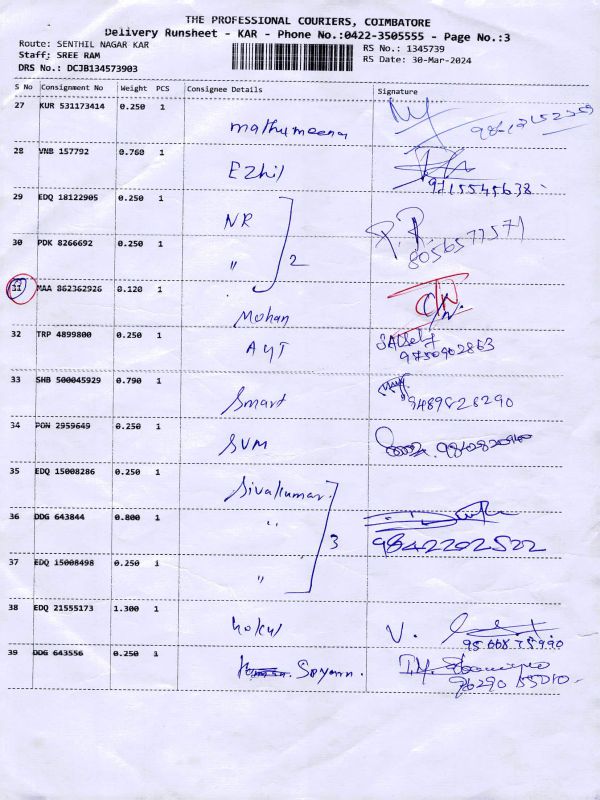 THE PROFESSIONAL COURIERS, COIMBATORE
Delivery Runsheet - KAR - Phone No.:0422-3505555 - Page No.:3
Route: SENTHIL NAGAR KAR
RS No.: 1345739
Staff: SREE RAM
RS Date: 30-Mar-2024
DRS No.: DCJB134573903
S No Consignment No Weight PCS Consignee Details Signature
27 KUR 531173414 0.250 1 mathumeena
28 VNB 157792 0.760 1 Ezhil
9715545638
29 EDQ 18122905 0.250 1 NR
30 PDK 8266692 0.250 1 " 2
8056577571
31 MAA 862362926 0.120 1 Mohan
32 TRP 4899800 0.250 1 AYT
9750902863
33 SHB 500045929 0.790 1 Smart
9489828290
34 PON 2959649 0.250 1 SVM
35 EDQ 15008286 0.250 1 Sivakumar
36 DDG 643844 0.800 1 " 3
9842202522
37 EDQ 15008498 0.250 1 "
38 EDQ 21555173 1.300 1 Gokul V.
39 DDG 643556 0.250 1